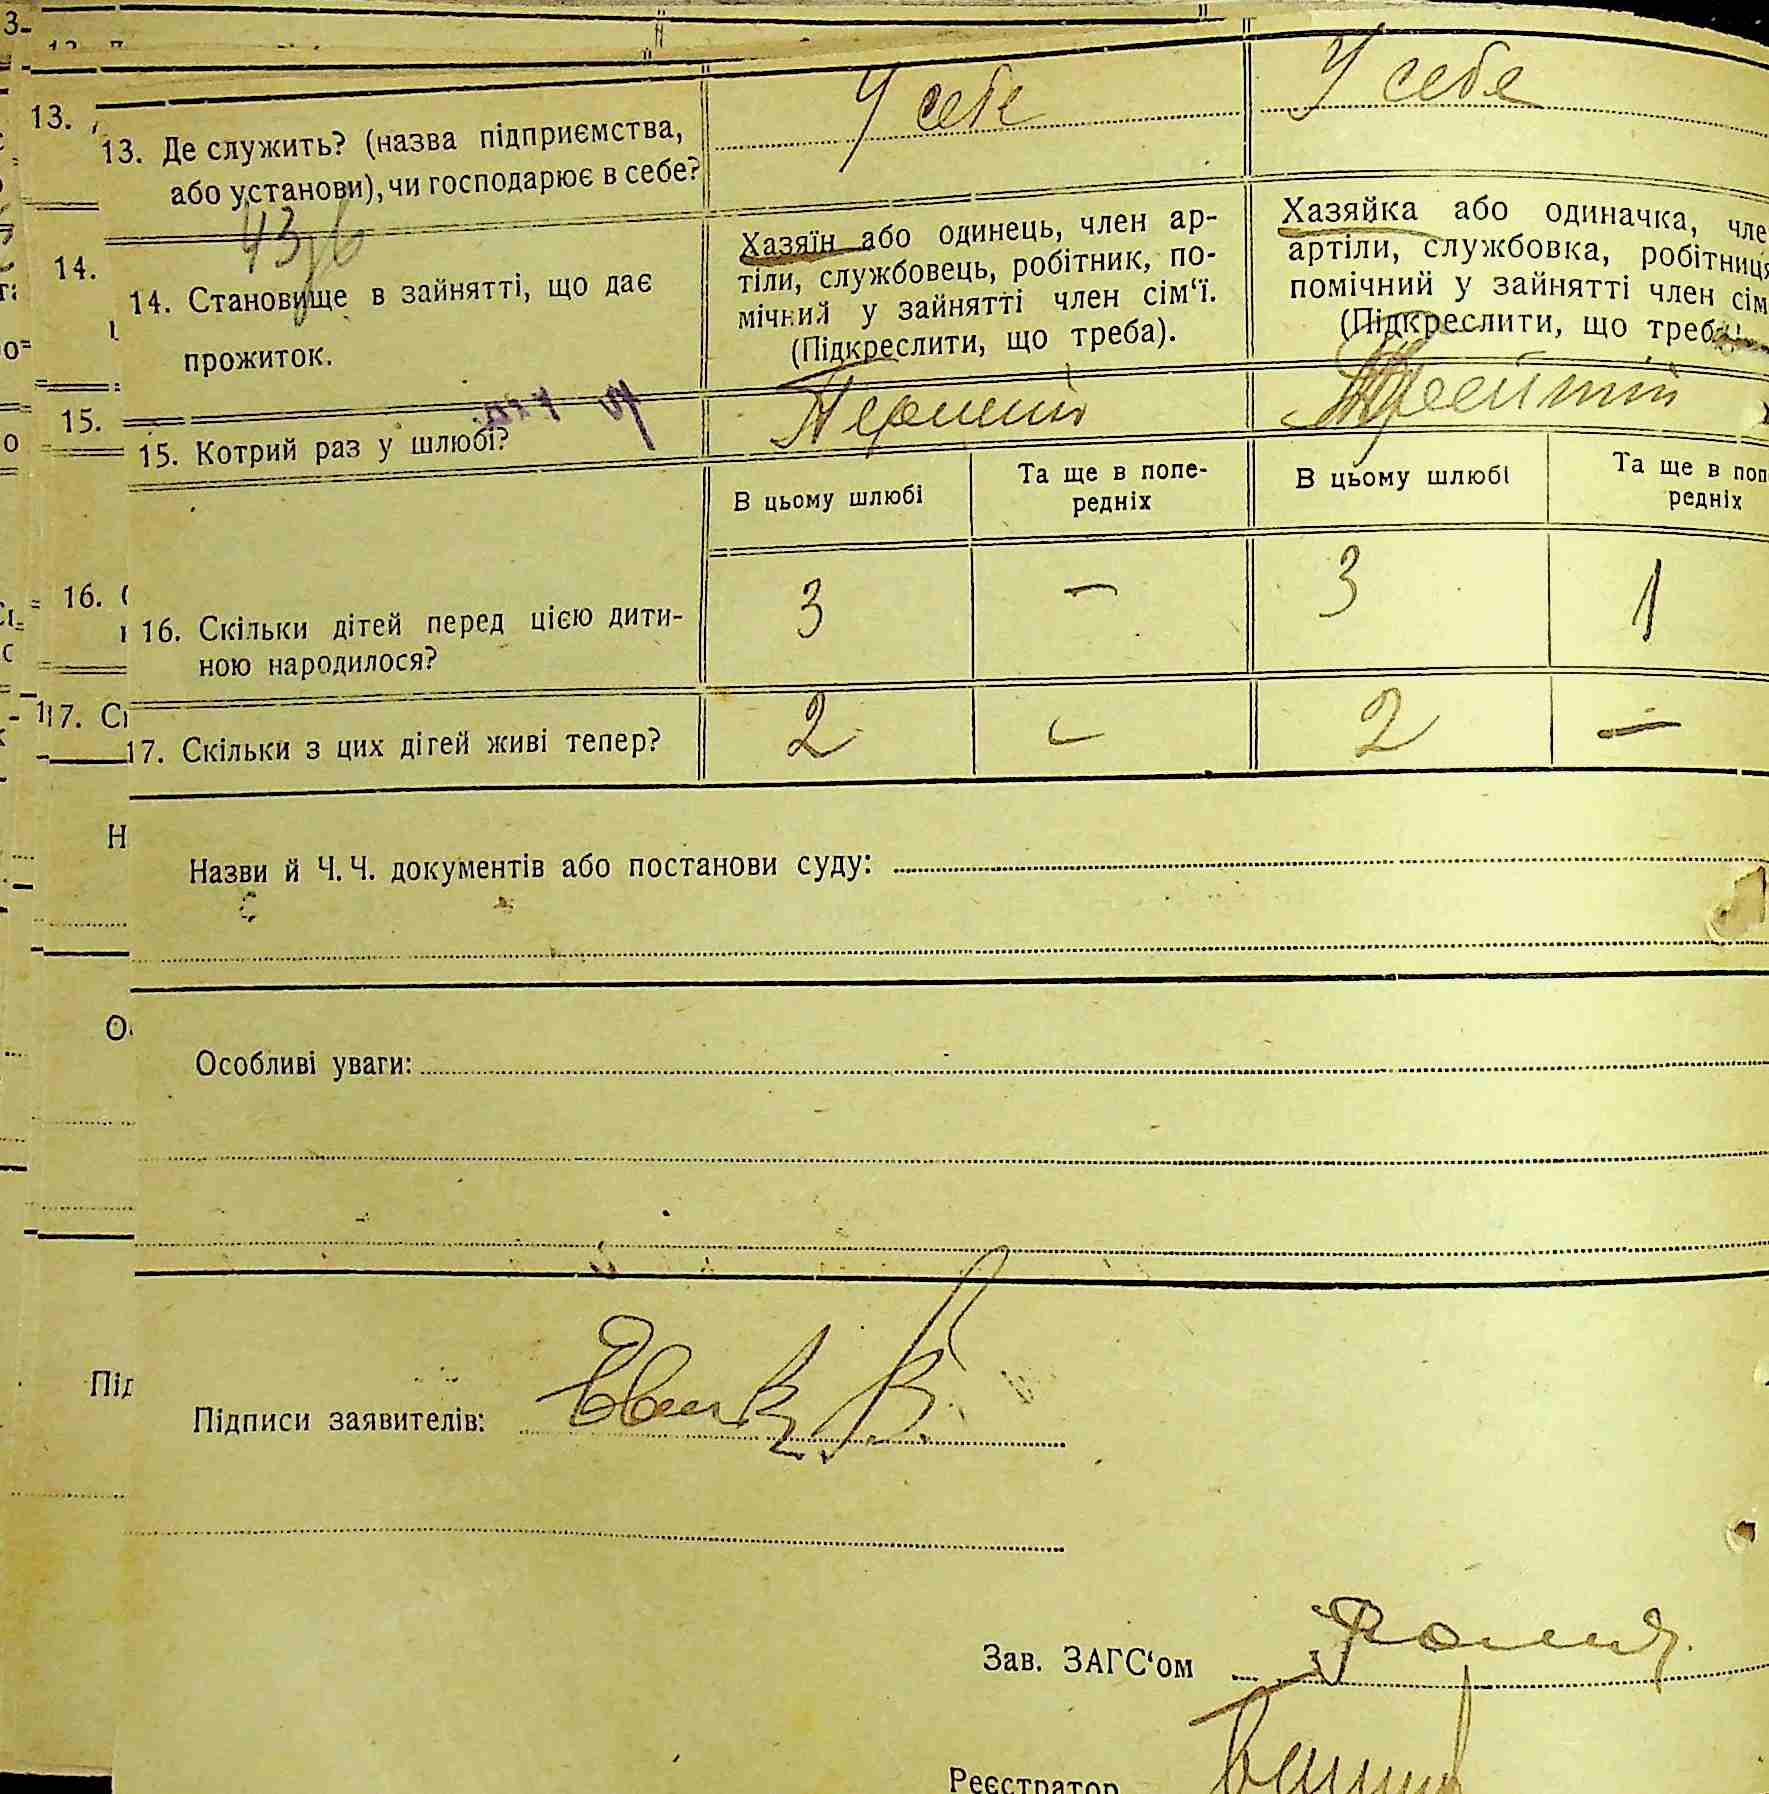 13. Де служить? (назва підприємства,
або установи), чи господарює в себе?
У себе
У себе
14. Становище в зайнятті, що дає
прожиток.
Хазяїн або одинець, член ар-
тіли, службовець, робітник, по-
мічний у зайнятті член сім‘ї.
(Підкреслити, що треба).
Хазяйка або одиначка, чле
артіли, службовка, робітниця
помічний у зайнятті член сім
(Підкреслити, що треба
15. Котрий раз у шлюбі?
Перший
Третий
В цьому шлюбі
Та ще в попе-
редніх
В цьому шлюбі
Та ще в поп
редніх
16. Скільки дітей перед цією дити-
ною народилося?
3
—
3
1
17. Скільки з цих дітей живі тепер?
2
—
2
—
Назви й Ч. Ч. документів або постанови суду:
Особливі уваги:
Підписи заявителів:
Зав. ЗАГС‘ом
Реєстратор
13.
14.
15.
16.
17.